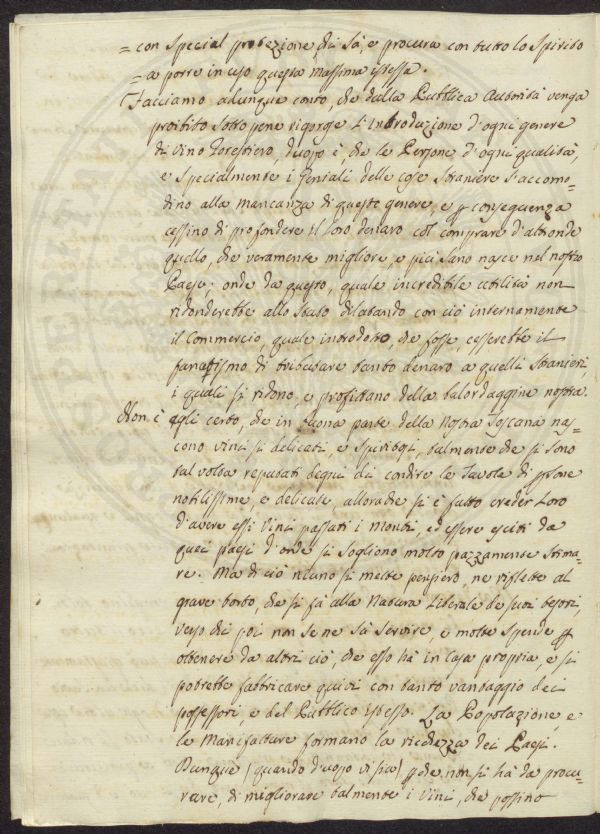 = con special protezione, chi sà, e procura con tutto lo spirito
= a porre in uso questa massima istessa.
Facciamo adunque conto, che dalla Pubblica Autorità venga
proibito sotto pene rigorose l'introduzione d'ogni genere
di vino forestiero, d'uopo è, che le Persone d'ogni qualità,
e specialmente i Geniali delle cose straniere s'accomo=
dino alla mancanza di questo genere, e p conseguenza
cessino di profondere il loro denaro col comprare d'altronde
quello, che veramente migliore, e più sano nasce nel nostro
Paese; onde da questo, quale incredibile utilità non
ridonderebbe allo stato dilatando con ciò internamente
il Commercio, quale introdotto, che fosse, cesserebbe il
fanatismo di tributare tanto denaro a quelli stranieri,
i quali si ridono, e profittano della balordaggine nostra.
Non è egli certo, che in buona parte della Nostra Toscana nas=
cono vini sì delicati, e spiritosi, talmente che si sono
tal volta reputati degni di condire le Tavole di psone
nobilissime, e delicate, allorchè si è fatto creder loro
d'avere essi Vini passati i Monti, ed essere esciti da
quei paesi d'onde si sogliono molto pazzamente stima=
re. Ma di ciò niuno si mette pensiero, ne riflette al
grave torto, che si fà alla Natura liberale de suoi tesori,
verso chi poi non se ne sà servire, e molto spende p
ottenere da altri ciò, che esso hà in Casa propria, e si
potrebbe fabbricare quivi con tanto vantaggio dei
possessori, e del Pubblico istesso. La Popolazione, e
le Manifatture formano la ricchezza dei Paesi.
Dunque (quando d'uopo vi sia) pche non si hà da procu=
rare, di migliorare talmente i Vini, che possino